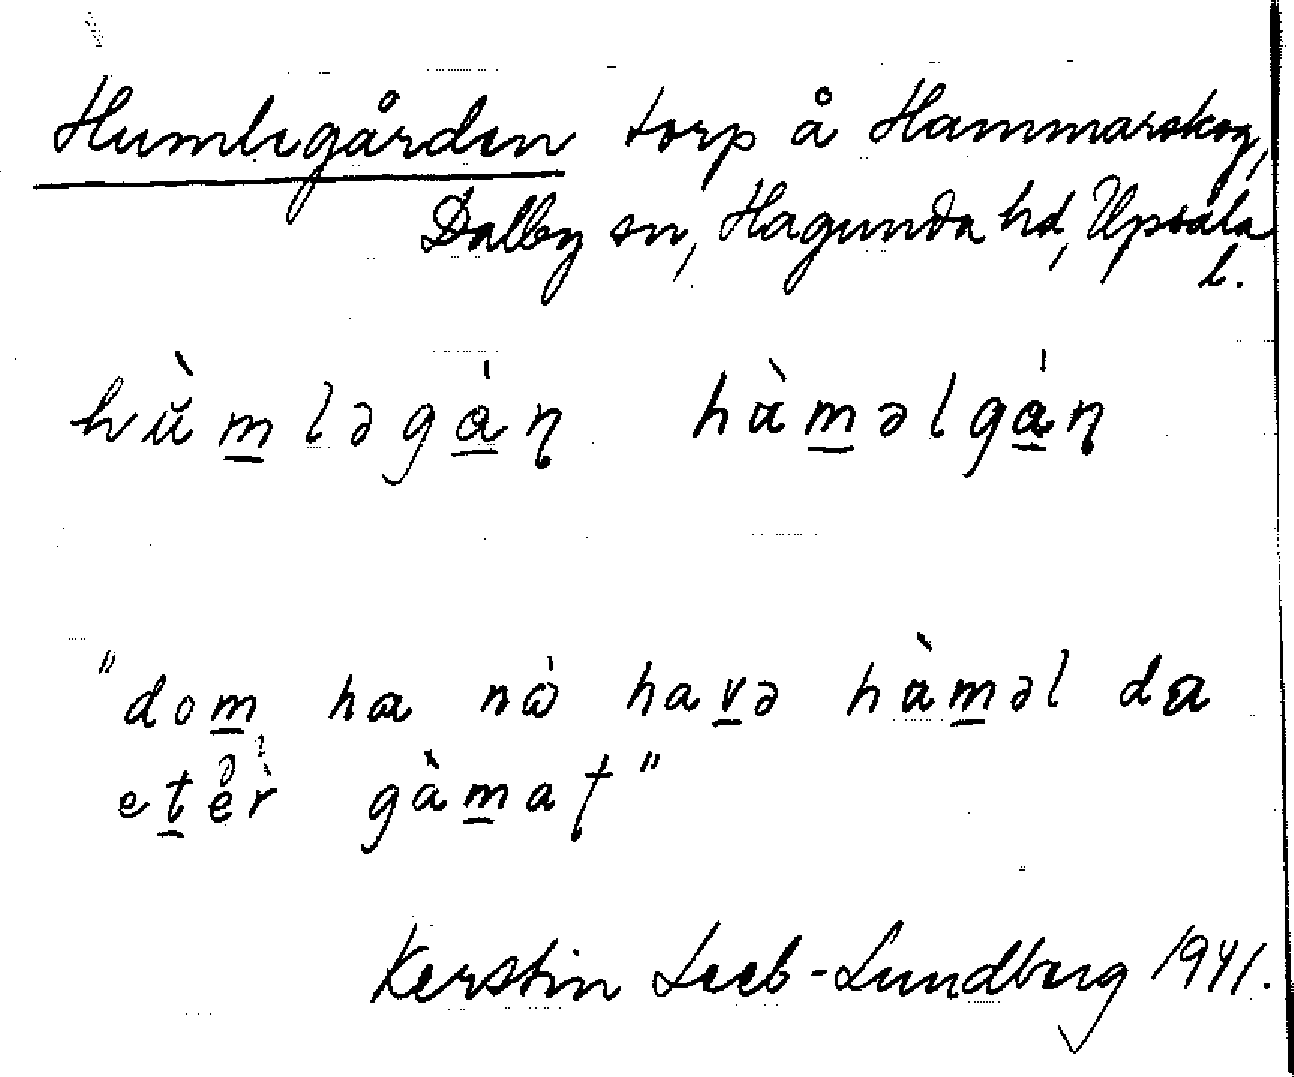 Humlegården torp å Hammarskog,
Dalby sn, Hagunda hd, Upsala
l.
hù̆m̲ləgȧ̲ɳ hɑ̀m̲əlgȧ̲ɳ
"dom̲ hɑ nὼ hav̲ə hɑ̀m̲əl da
et̲ėr̀ gàm̲aƭ"
Kerstin Leeb-Lundberg 1941.